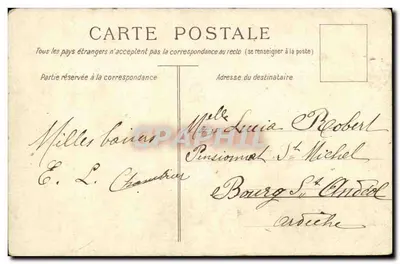 CARTE POSTALE
Tous les pays étrangers n'acceptent pas la correspondance au recto (se renseigner à la poste)
Partie réservée à la correspondance
Adresse du destinataire
Milles baisers
E. L. Chambrier
Melle Lucia Robert
Pensionnat St Michel
Bourg St Andéol
Ardèche
CPAPHIL